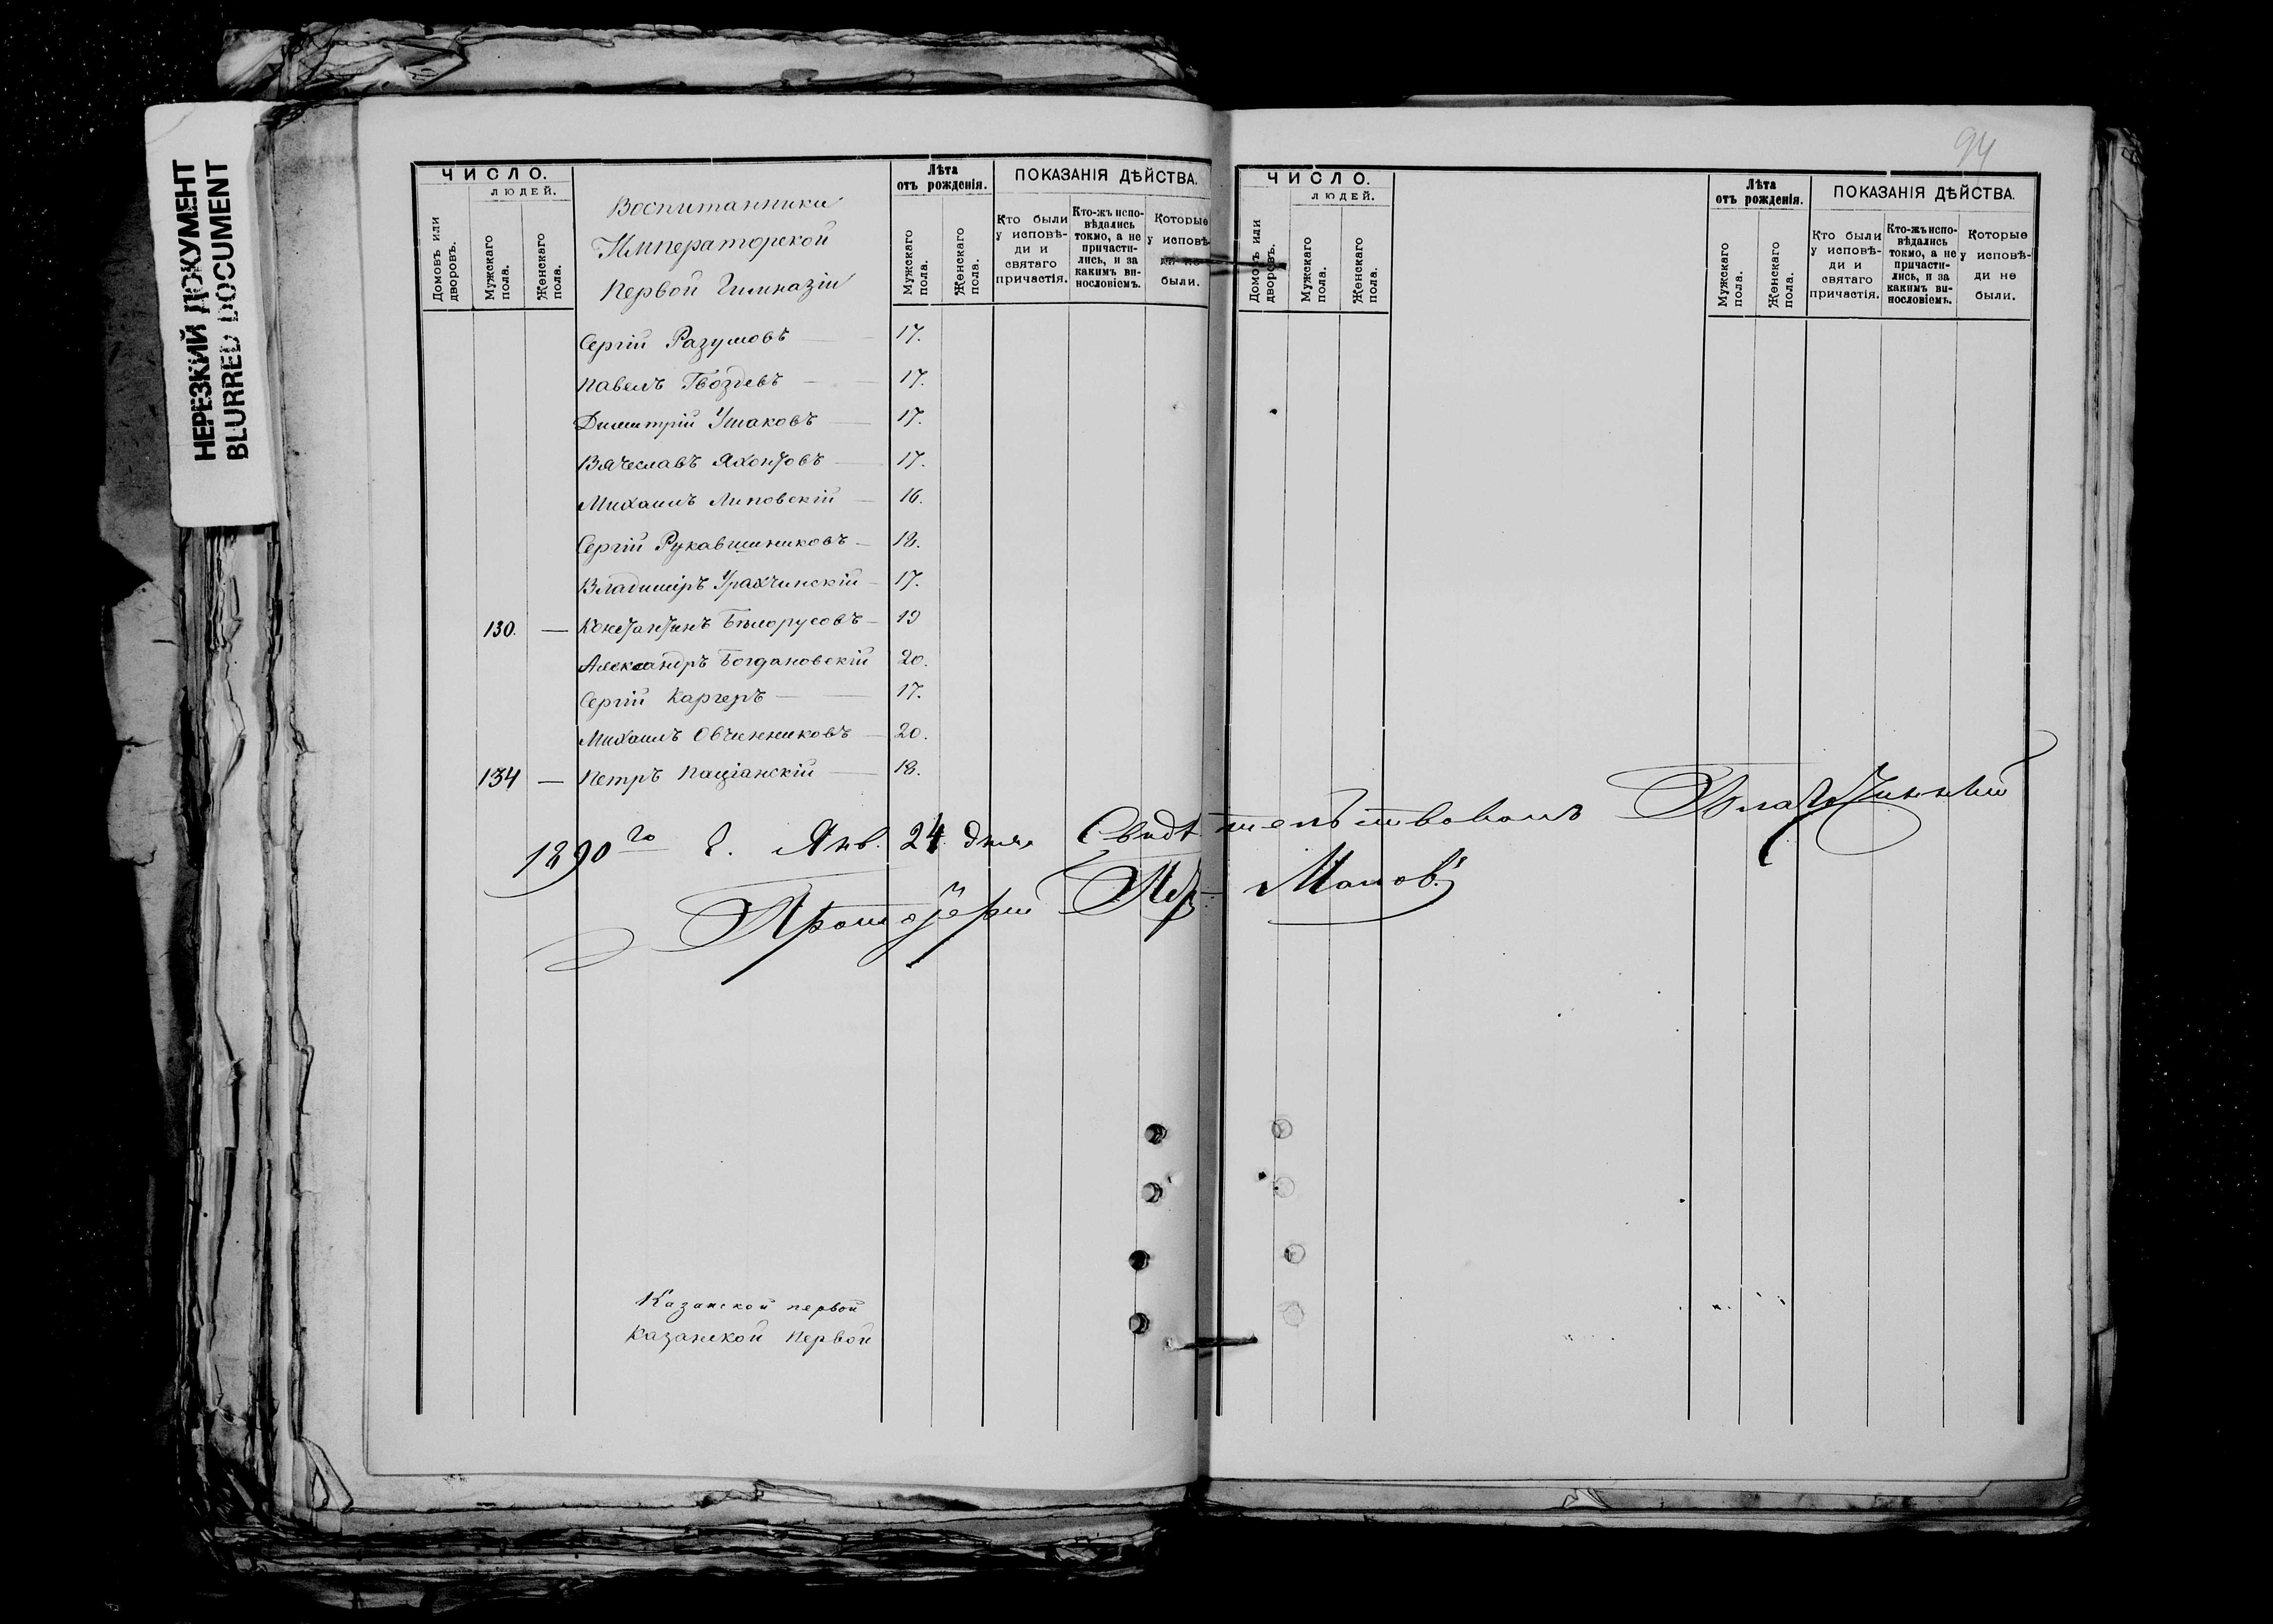 НЕРЕЗКИЙ ДОКУМЕНТ
BLURRED DOCUMENT
94
ЧИСЛО.
ЛЮДЕЙ.
Домовъ или дворовъ.
Мужскаго пола.
Женскаго пола.
Воспитанники
Императорской
Первой Гимназіи
Лѣта
отъ рожденія.
Мужскаго пола.
Женскаго пола.
ПОКАЗАНІЯ ДѢЙСТВА.
Кто были у исповѣ-ди и святаго причастія.
Кто-жъ испо-вѣдались токмо, а не причасти-лись, и за какимъ ви-нословіемъ.
Которые у исповѣ-ди не были.
Сергій Разумовъ 17.
Павелъ Гвоздевъ 17.
Димитрій Ушаковъ 17.
Вячеславъ Яхонтовъ 17.
Михаилъ Липовскій 16.
Сергій Рукавишниковъ 18.
Владиміръ 17.
130. — Константинъ Бѣлорусовъ 19
Александръ Богдановскій 20.
Сергій Каргеръ 17.
Михаилъ Овчинниковъ 20.
134 — Петръ 18.
1890го г. Янв. 24 дня Свидѣтельствовалъ Благочинный
Протоіерей
Казанской первой
Казанской Первой
ЧИСЛО.
ЛЮДЕЙ.
Домовъ или дворовъ.
Мужскаго пола.
Женскаго пола.
Лѣта
отъ рожденія.
Мужскаго пола.
Женскаго пола.
ПОКАЗАНІЯ ДѢЙСТВА.
Кто были у исповѣ-ди и святаго причастія.
Кто-жъ испо-вѣдались токмо, а не причасти-лись, и за какимъ ви-нословіемъ.
Которые у исповѣ-ди не были.